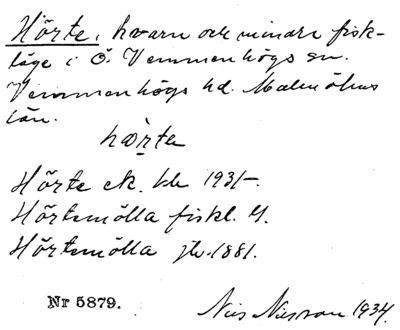 Hörte, kvarn och mindre fisk-
läge i Ö. Vemmenhögs sn.
Vemmenhögs hd. Malmöhus
län.
hœ̀rte
Hörte ek. bl. 1931-.
Hörtemölla fiskl. 4.
Hörtemölla jlv. 1881.
Nr 5879.
Nils Nilsson 1934.